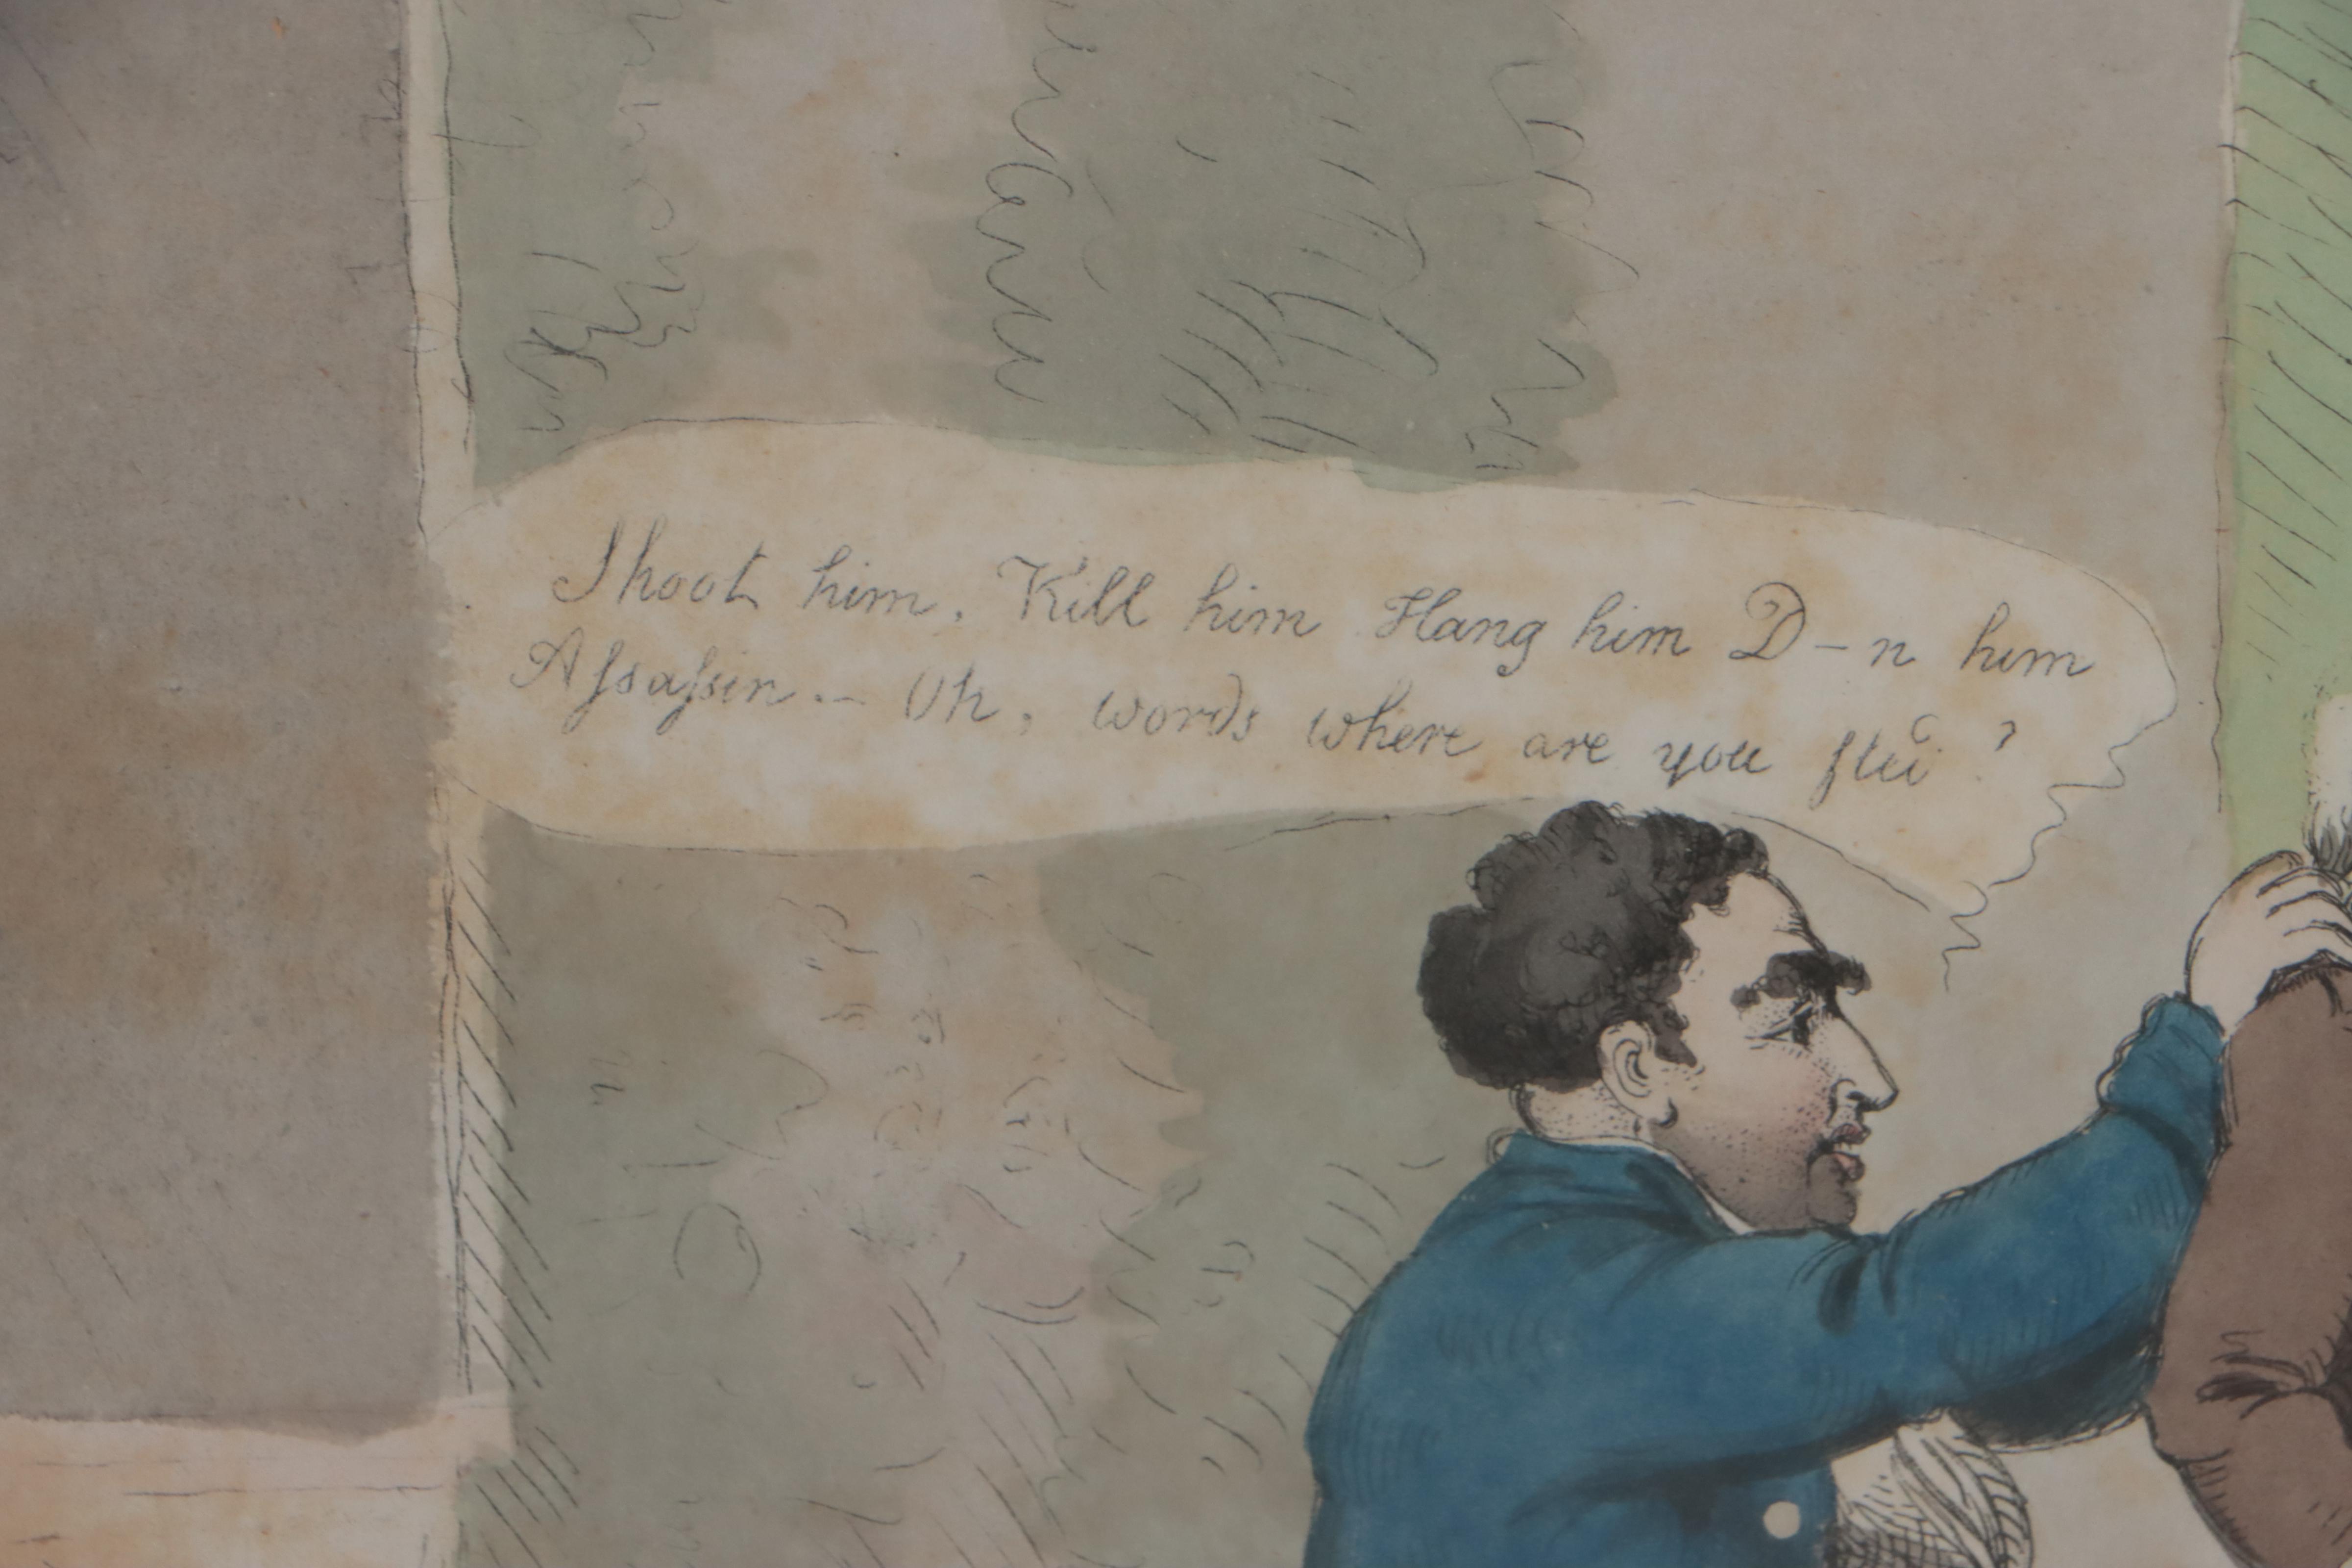 Shoot him. Kill him Hang him D–n him
Aſsaſsin -- Oh, words where are you fled ?